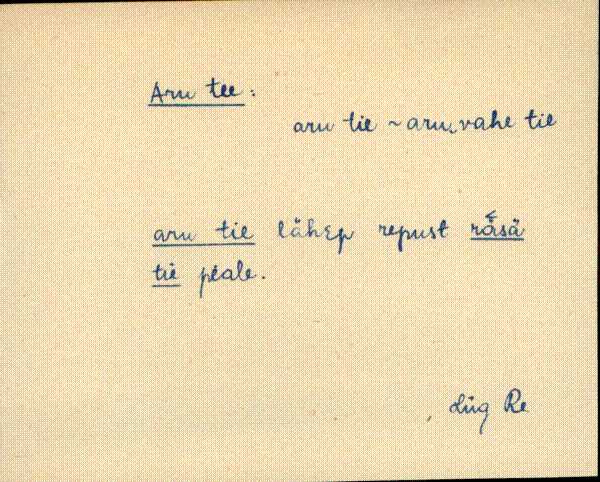 Aru tee:
aru tie ~ aru‿vahe tie
aru tie lähep repust
tie peale.
Lüg Re